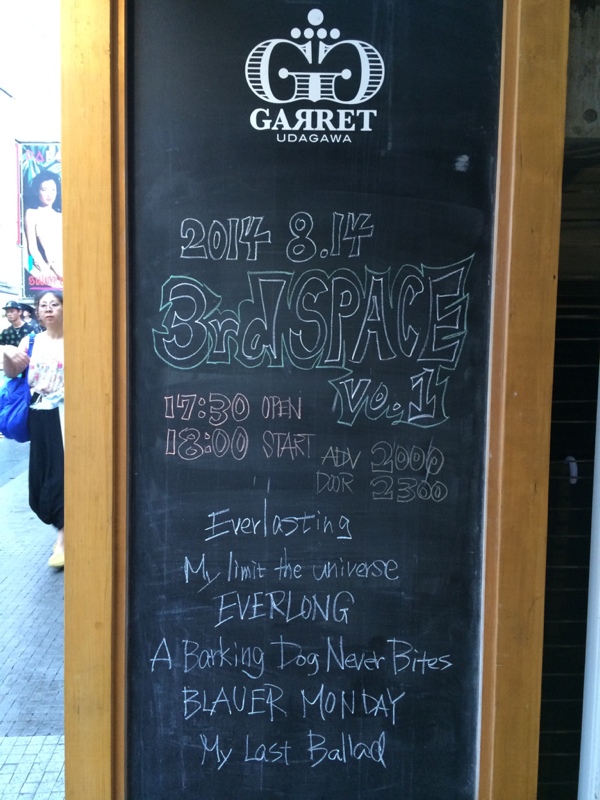 GAЯRET
UDAGAWA
2014 8.14
3rd SPACE
vo.1
17:30 OPEN
18:00 START
ADV 2000
DOOR 2300
Everlasting
My limit the universe
EVERLONG
A Barking Dog Never Bites
BLAUER MONDAY
My Last Ballad